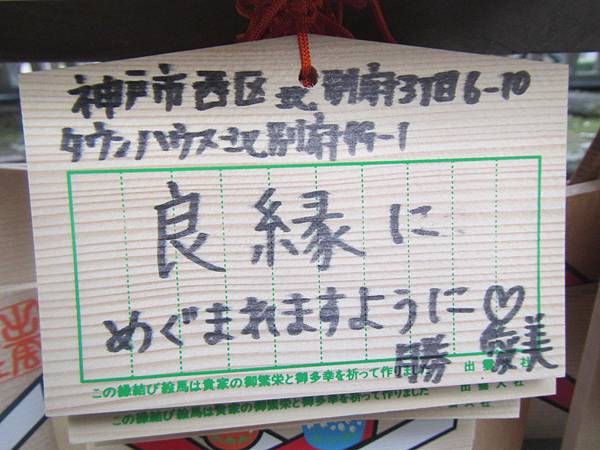 神戸市西区北別府3丁目6-10
タウンハウス北別府44-1
良縁に
めぐまれますように♡
勝 愛美
この縁結び絵馬は貴家の御繁栄と御多幸を祈って作りました 出雲大社
この縁結び絵馬は貴家の御繁栄と御多幸を祈って作りました 出雲大社